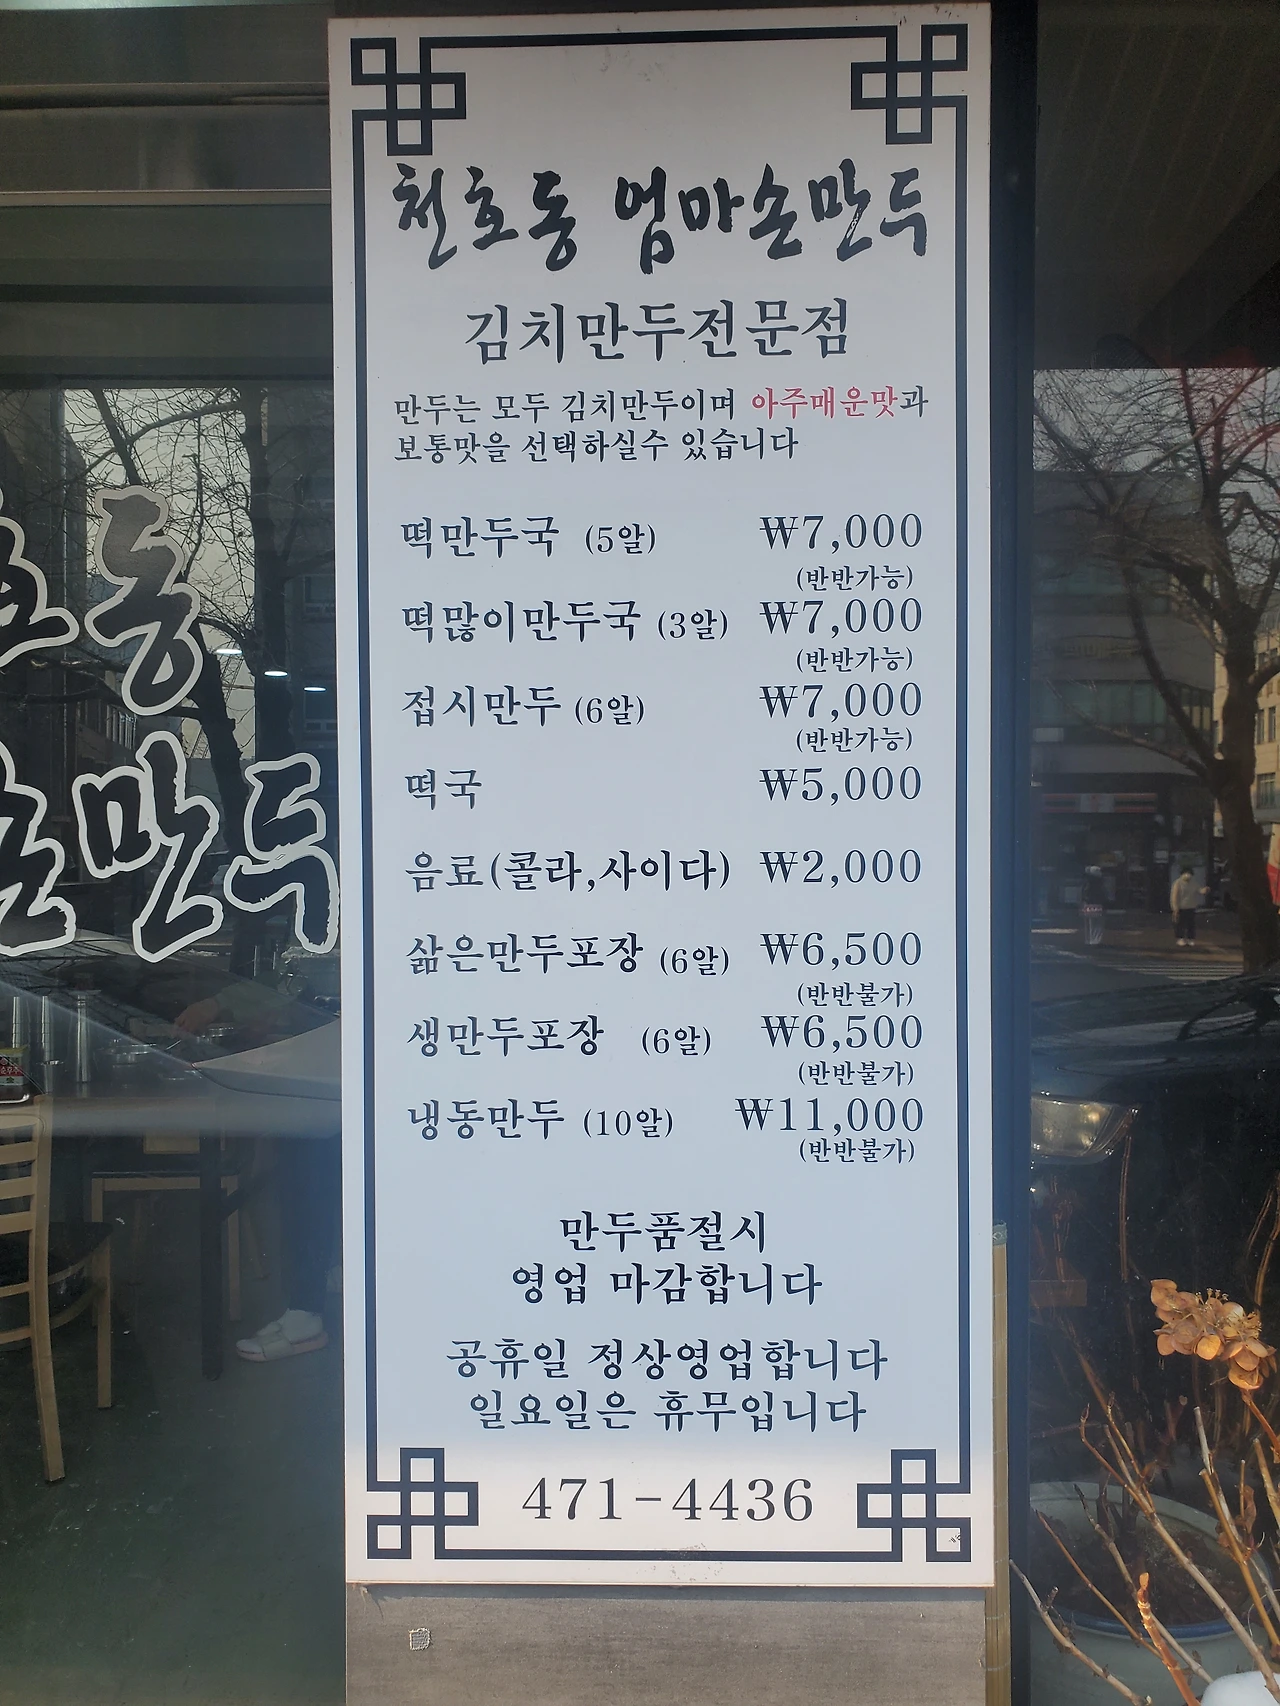 천호동 엄마손만두
김치만두전문점
만두는 모두 김치만두이며 아주매운맛과
보통맛을 선택하실수 있습니다
떡만두국 (5알) ₩7,000
(반반가능)
떡많이만두국 (3알) ₩7,000
(반반가능)
접시만두 (6알) ₩7,000
(반반가능)
떡국 ₩5,000
음료(콜라,사이다) ₩2,000
삶은만두포장 (6알) ₩6,500
(반반불가)
생만두포장 (6알) ₩6,500
(반반불가)
냉동만두 (10알) ₩11,000
(반반불가)
만두품절시
영업 마감합니다
공휴일 정상영업합니다
일요일은 휴무입니다
471-4436
호동
손만두